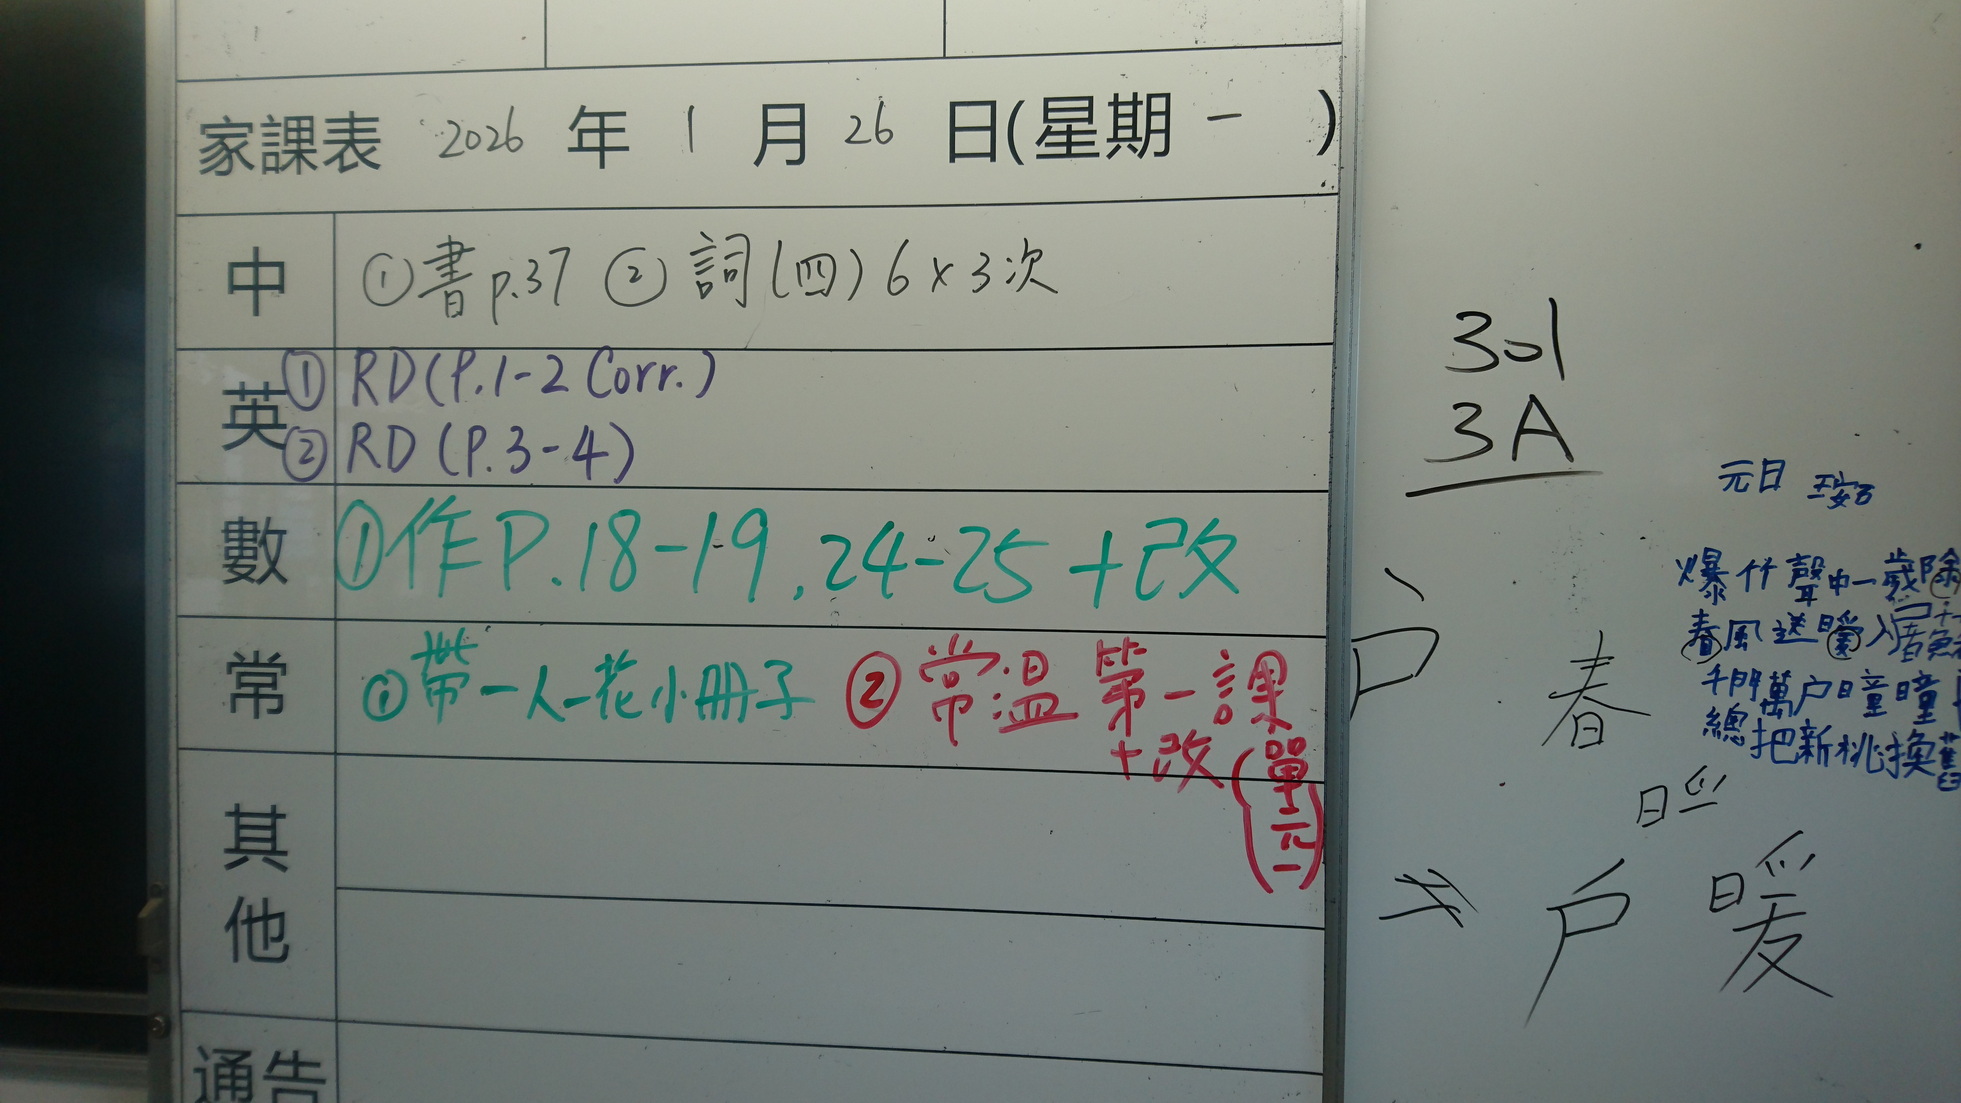 家課表 2026 年 1 月 26 日(星期一)
中 ①書p.37 ②詞(四)6×3次
英 ① RD(P.1-2 Corr.)
② RD(P.3-4)
數 ①作P.18-19,24-25+改
常 ①帶一人一花小冊子 ②常溫第一課
+改(單元一)
其他
通告
301
3A
元日 王安石
爆竹聲中一歲除
春風送暖入屠蘇
千門萬戶曈曈
總把新桃換舊
戶 春
戶 暖